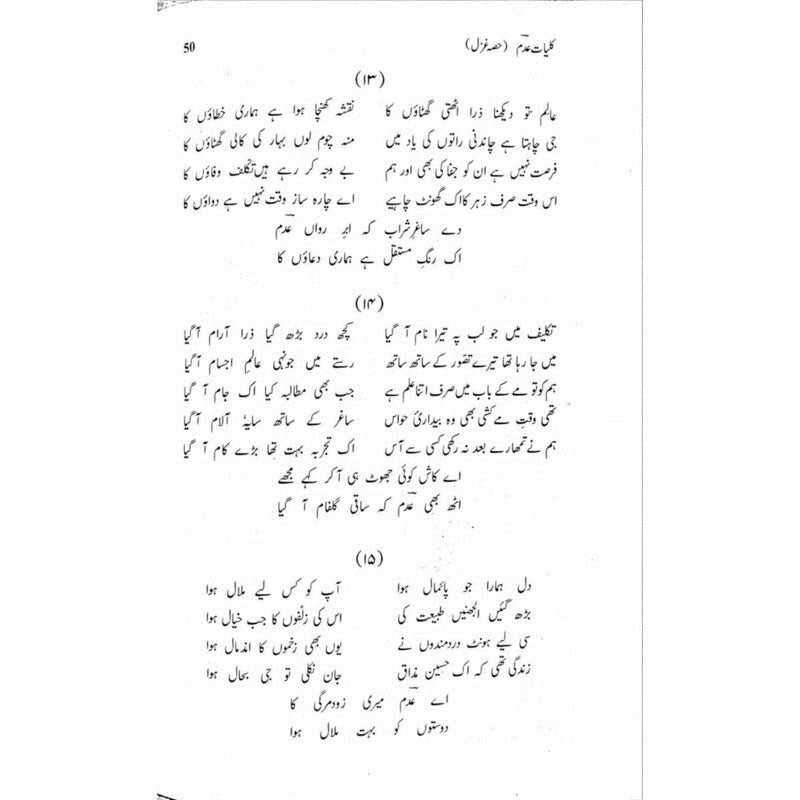 کلیات عدم (حصہ غزل) 50
(۱۳)
عالم تو دیکھنا ذرا اٹھتی گھٹاؤں کا نقشہ کھنچا ہوا ہے ہماری خطاؤں کا
جی چاہتا ہے چاندنی راتوں کی یاد میں منہ چوم لوں بہار کی کالی گھٹاؤں کا
فرصت نہیں ہے ان کو جفا کی بھی اور ہم بے وجہ کر رہے ہیں تکلف وفاؤں کا
اس وقت صرف زہر کا اک گھونٹ چاہیے اے چارہ ساز وقت نہیں ہے دواؤں کا
دے ساغرِ شراب کہ ابرِ رواں عدمؔ
اک رنگِ مستقل ہے ہماری دعاؤں کا
(۱۴)
تکلیف میں جو لب پہ تیرا نام آ گیا کچھ درد بڑھ گیا ذرا آرام آ گیا
میں جا رہا تھا تیرے تصور کے ساتھ ساتھ رستے میں جونہی عالمِ اجسام آ گیا
ہم کو تو مے کے باب میں صرف اتنا علم ہے جب بھی مطالبہ کیا اک جام آ گیا
تھی وقتِ مے کشی بھی وہ بیداریٔ حواس ساغر کے ساتھ سایۂ آلام آ گیا
ہم نے تمھارے بعد نہ رکھی کسی سے آس اک تجربہ بہت تھا بڑے کام آ گیا
اے کاش کوئی جھوٹ ہی آ کر کہے مجھے
اٹھ بھی عدمؔ کہ ساقی گلفام آ گیا
(۱۵)
دل ہمارا جو پائمال ہوا آپ کو کس لیے ملال ہوا
بڑھ گئیں الجھنیں طبیعت کی اس کی زلفوں کا جب خیال ہوا
سی لیے ہونٹ دردمندوں نے یوں بھی زخموں کا اندمال ہوا
زندگی تھی کہ اک حسین مذاق جان نکلی تو جی بحال ہوا
اے عدمؔ میری زودمرگی کا
دوستوں کو بہت ملال ہوا